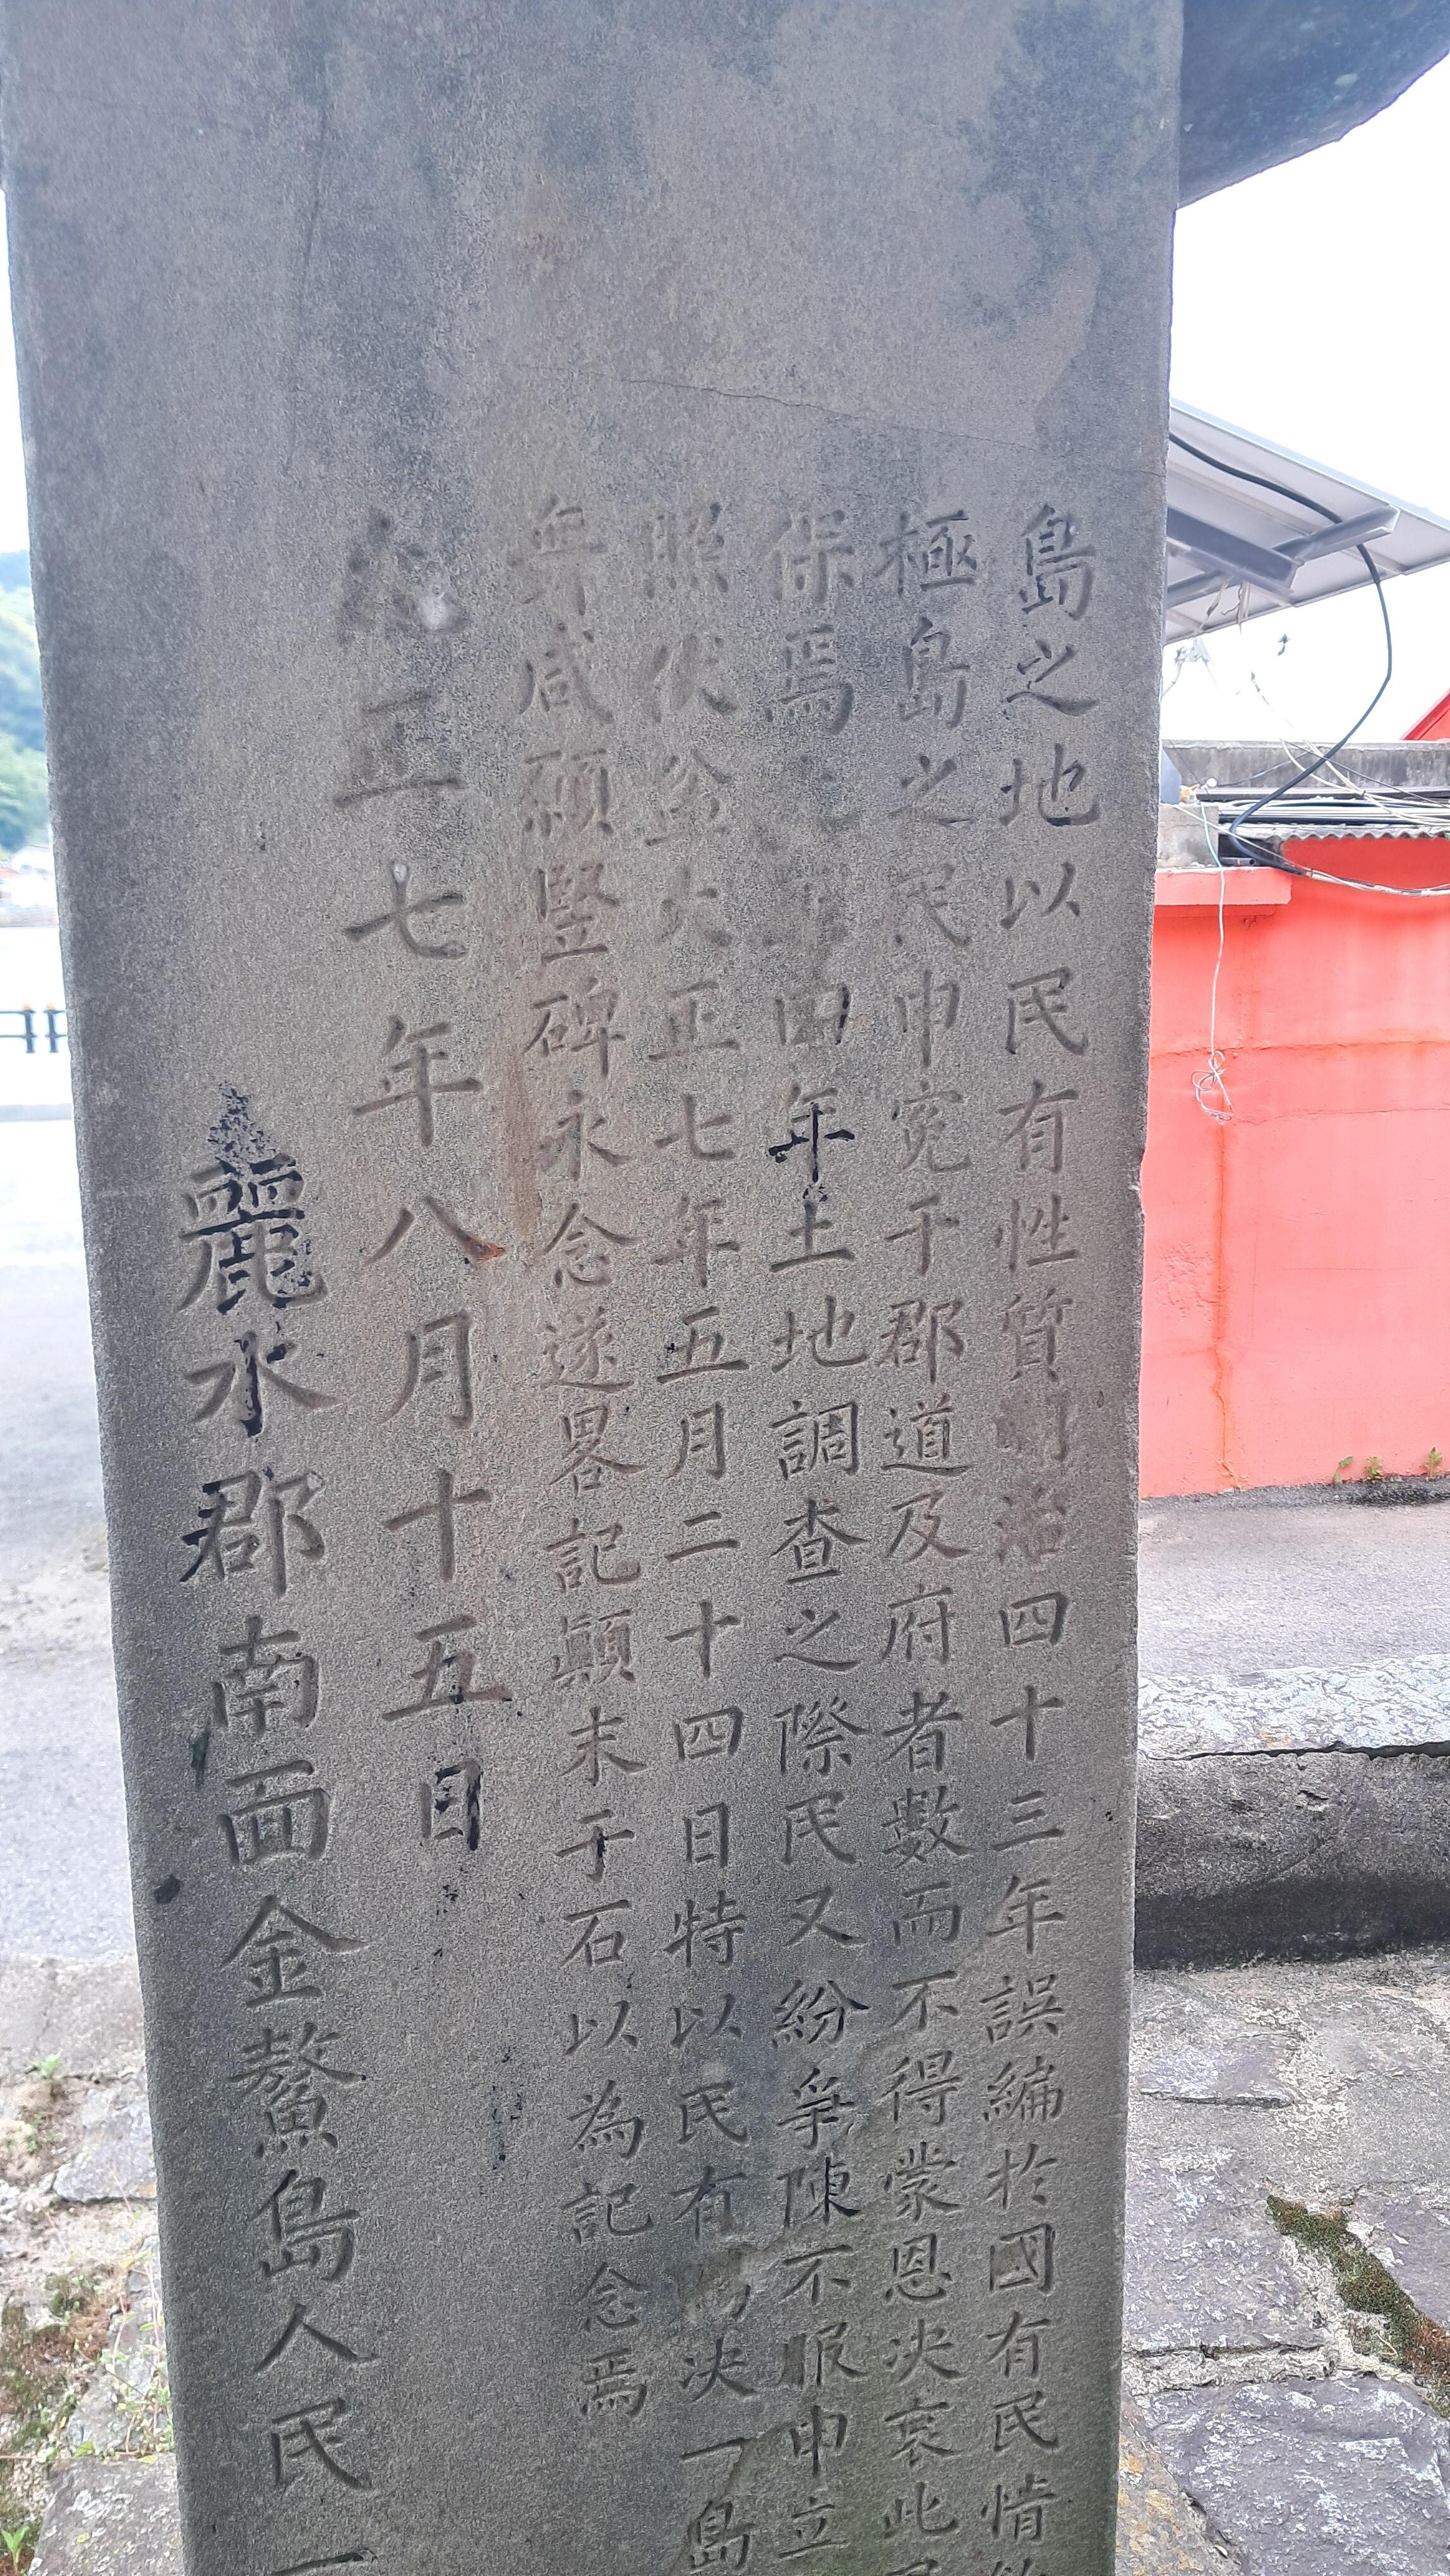 島之地以民有性質明治四十三年誤編於國有民情
極島之民申寃于郡道及府者數而不得蒙恩决哀此
保焉 四年土地調查之際民又紛爭陳不服申立
照伏 大正七年五月二十四日特以民有 决一島
年咸願竪碑永念遂畧記顚末于石以為記念焉
大正七年八月十五日
麗水郡南面金鰲島人民一